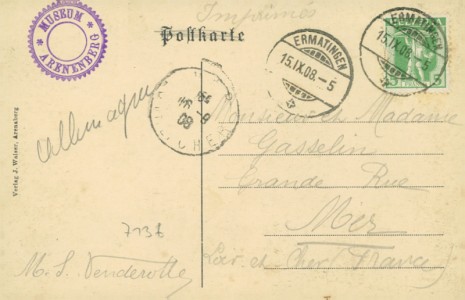 Imprimés
Postkarte
MUSEUM
ARENENBERG
ERMATINGEN
15.IX.08.-5
ERMATINGEN
15.IX.08.-5
Allemagne
Monsieur et Madame
Gasselin
Grande Rue
Mer
Loir et Cher (France)
7136
M. S. Venderotte
Verlag J. Walser, Arenenberg